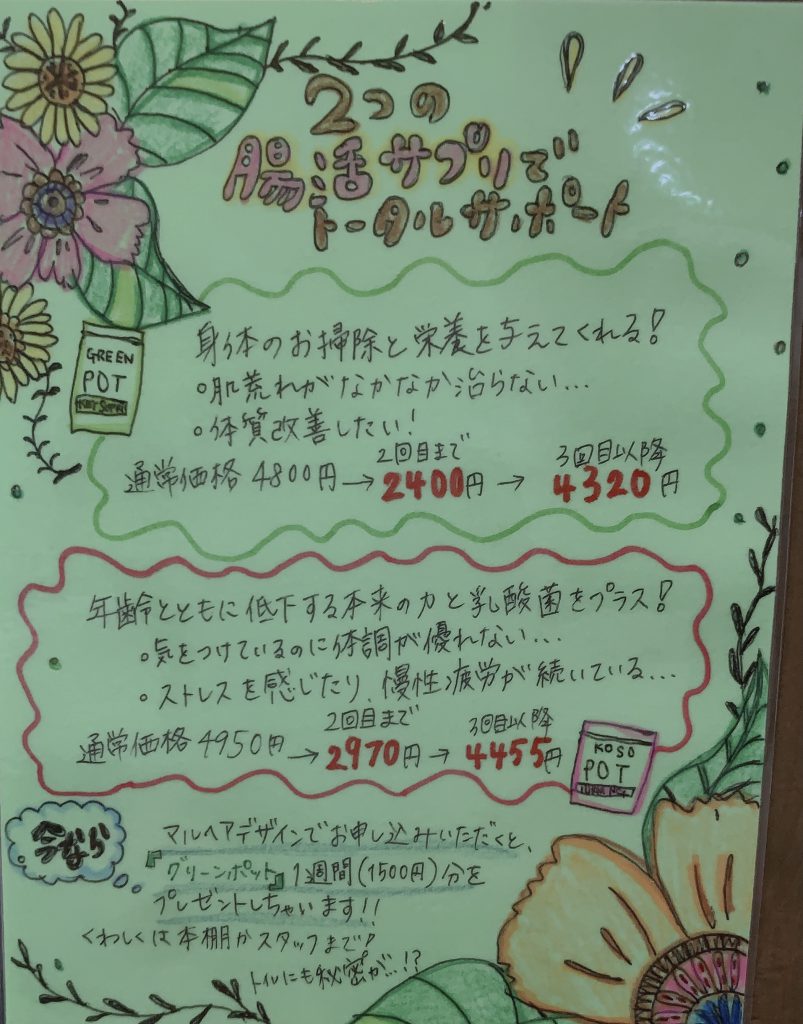 2つの
腸活サプリで
トータルサポート
GREEN
POT
身体のお掃除と栄養を与えてくれる!
○肌荒れがなかなか治らない...
○体質改善したい!
2回目まで 3回目以降
通常価格 4800円→2400円→4320円
年齢とともに低下する本来の力と乳酸菌をプラス!
○気をつけているのに体調が優れない...
○ストレスを感じたり、慢性疲労が続いている...
2回目まで 3回目以降
通常価格4950円→2970円→4455円
KOSO
POT
今なら
マルヘアデザインでお申し込みいただくと、
『グリーンポット』1週間(1500円)分を
プレゼントしちゃいます!!
くわしくは本棚かスタッフまで♪
トイレにも秘密が...!?